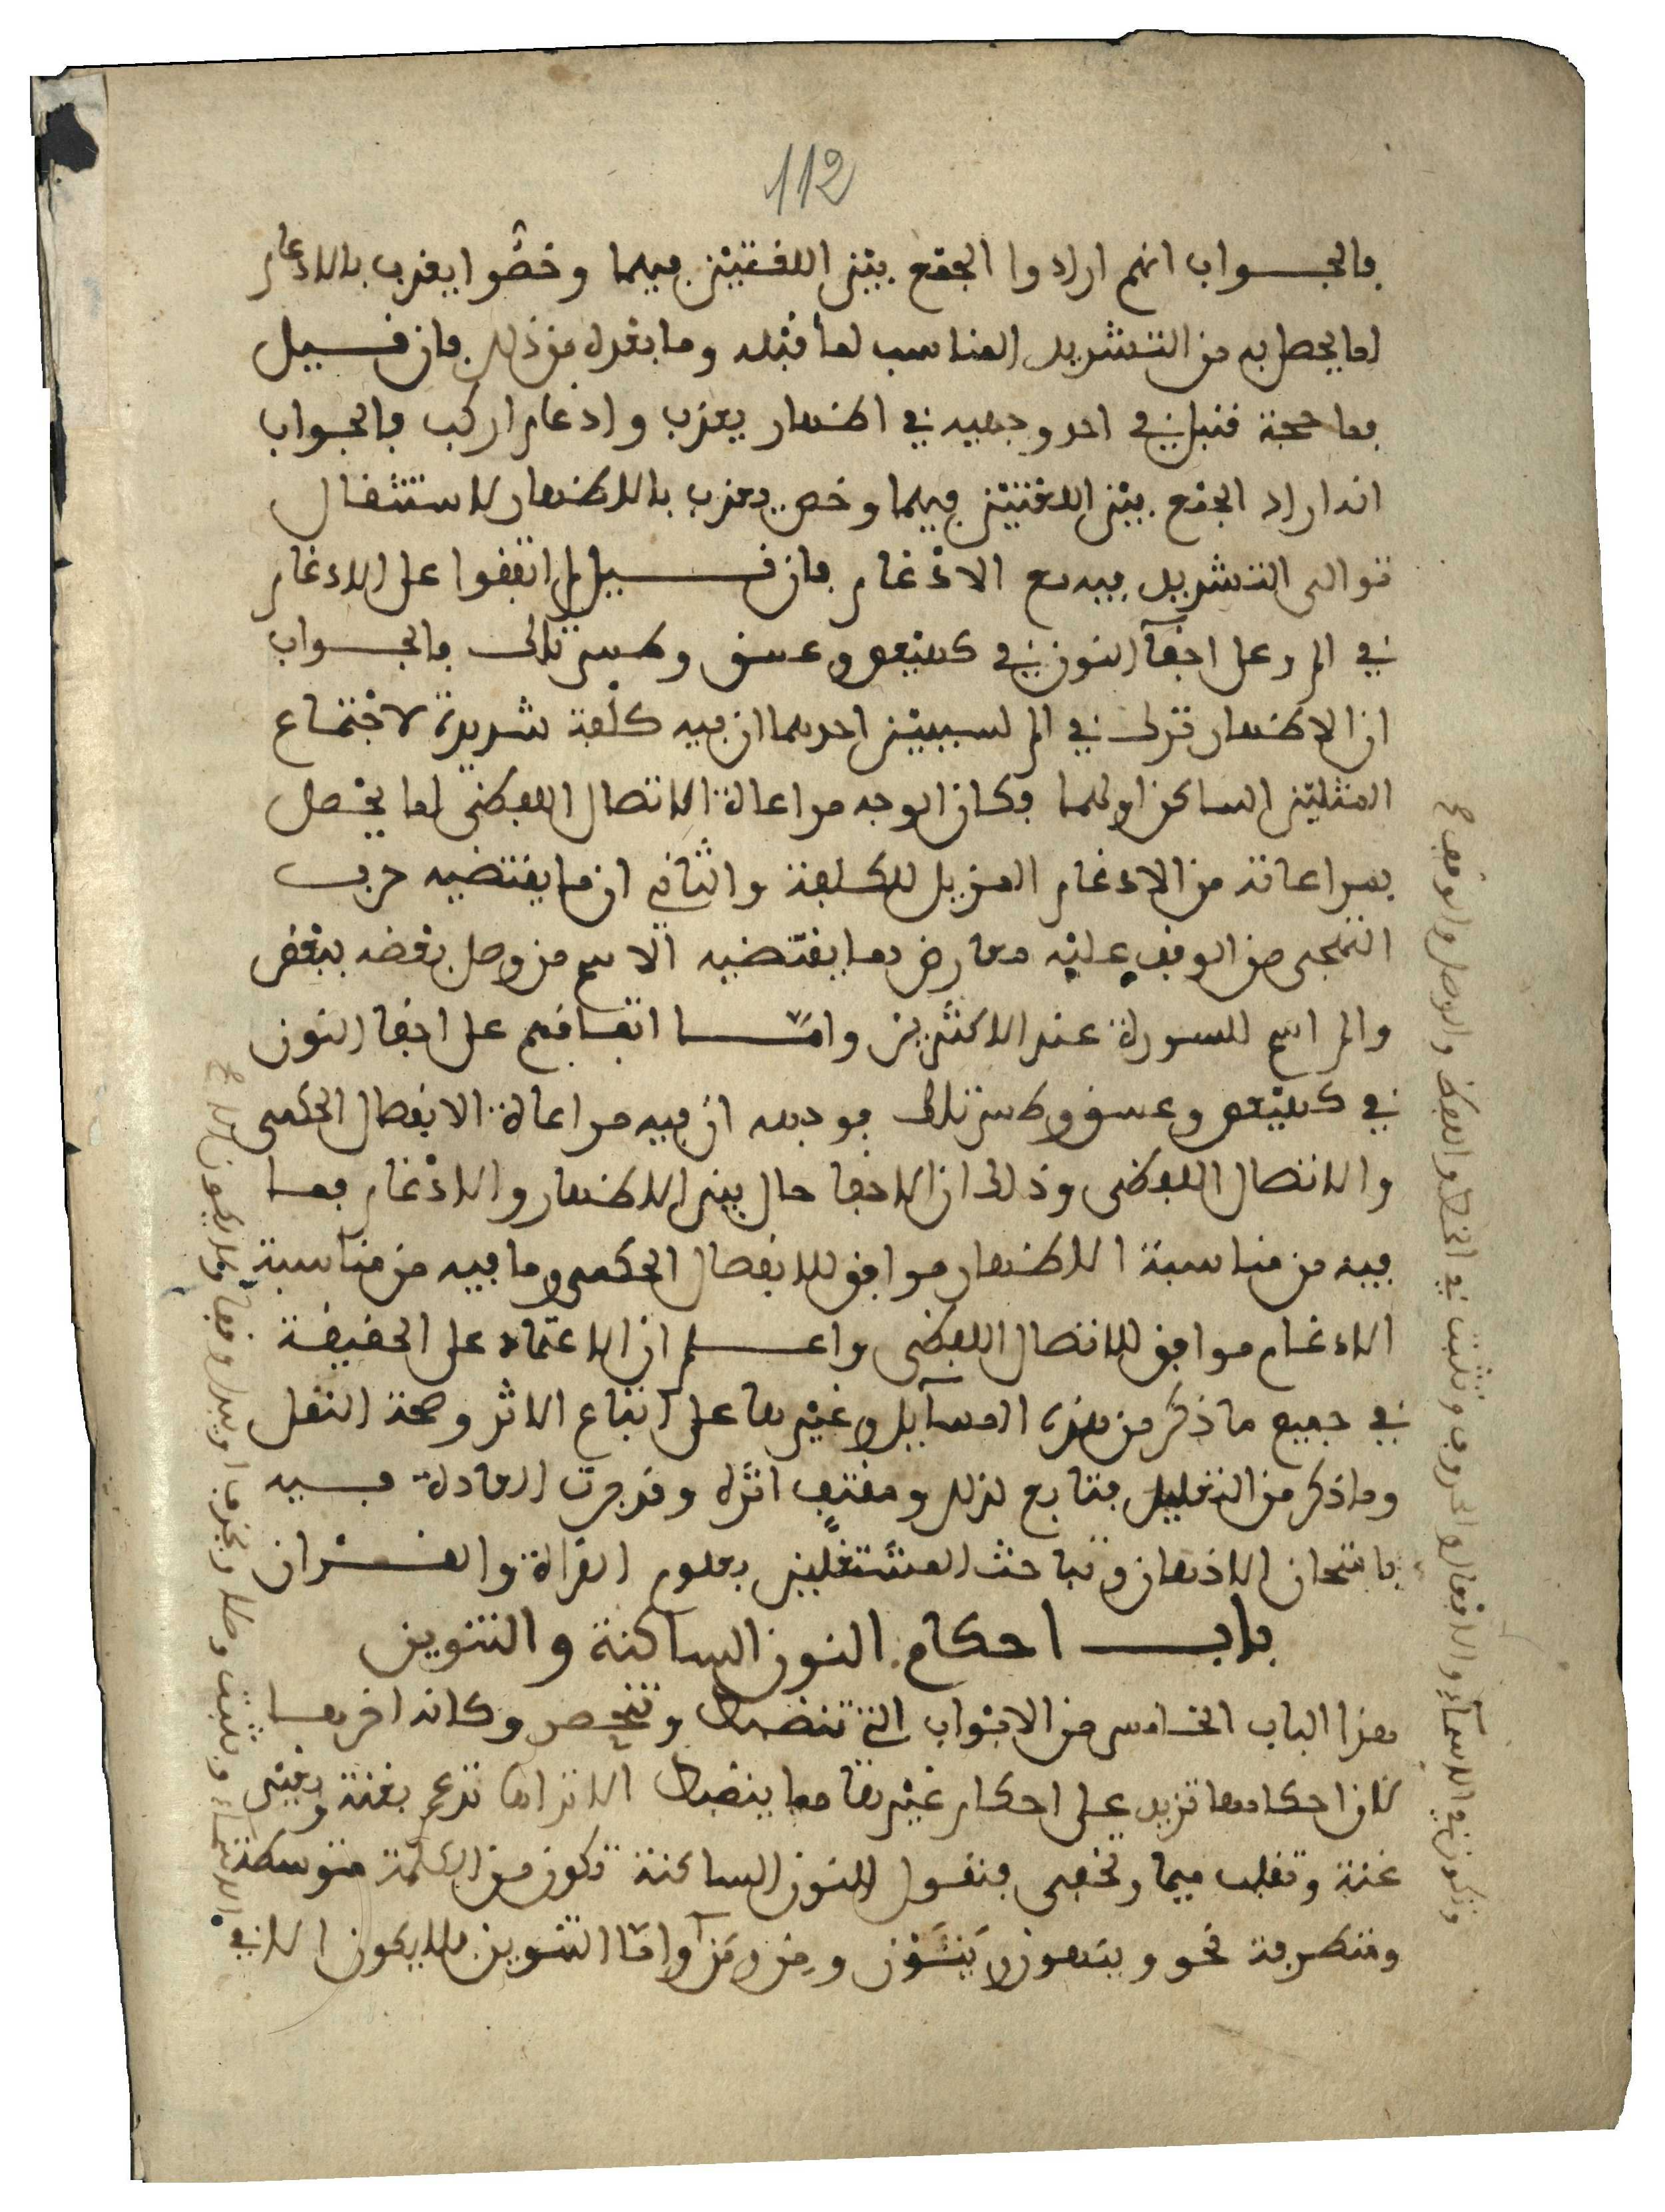 112
فالجواب انهم ارادوا الجمع بين اللغتين فيهما وخصوا يعذب بالادغام
لما يحصل به من التشديد المناسب لما قبله وما بعده من ذلك فان قيل
فما حجة قنبل في احد وجهيه في اظهار يعذب وادغام اركب فالجواب
انه اراد الجمع بين اللغتين فيهما وخص يعذب بالاظهار لاستثقال
توالى التشديد فيه مع الادغام فان قيل لم اتفقوا على الادغام
في الم وعلى اخفآ النون في كهيعص وعسق وطس تلك فالجواب
ان الاظهار ترك في الم لسببين احدهما ان فيه كلفة شديدة لاجتماع
المثلين الساكن اولهما فكان الوجه مراعاة الاتصال اللفظي لما يحصل
بمراعاته من الادغام المزيل للكلفة والثاني ان ما يقتضيه حرف
التهجي من الوقف عليه معارض بما يقتضيه الاسم من وصل بعضه ببعض
والم اسم للسورة عند الاكثرين وامّا اتفاقهم على اخفا النون
في كهيعص وعسق وطس تلك فوجهه ان فيه مراعاة الانفصال الحكمي
والاتصال اللفظي وذلك ان الاخفا حال بين الاظهار والادغام فما
فيه من مناسبة الاظهار موافق للانفصال الحكمي وما فيه من مناسبة
الادغام موافق للاتصال اللفظي واعلم ان الاعتماد على الحقيقة
في جميع ما ذكر من هذه المسآيل وغيرها على اتباع الاثر وصحة النقل
وما ذكر من التعليل فتابع لذلك ومقتف اثره وقد جرت العادة فيه
بامتحان الاذهان وتباحث المشتغلين بعلوم القراة والقرءان
باب احكام النون الساكنة والتنوين
هذا الباب الخامس من الابواب التي تنضبط وتنحصر وكانه افردها
لان احكامها تزيد على احكام غيرها مما ينضبط الا تراها تدغم بغنة وبغير
غنة وتقلب ميما وتخفى فنقول النون الساكنة تكون من الكلمة متوسطة
ومتطرفة نحو وينهون وينئون ومن ومن وامّا التنوين فلا يكون الا في
وتكون في الاسمآء والافعال والحروف وتثبت في الخط واللفظ والوصل والوقف
الاسماء ويثبت وصلا ويحذف او يبدل وقفا ولا يكون